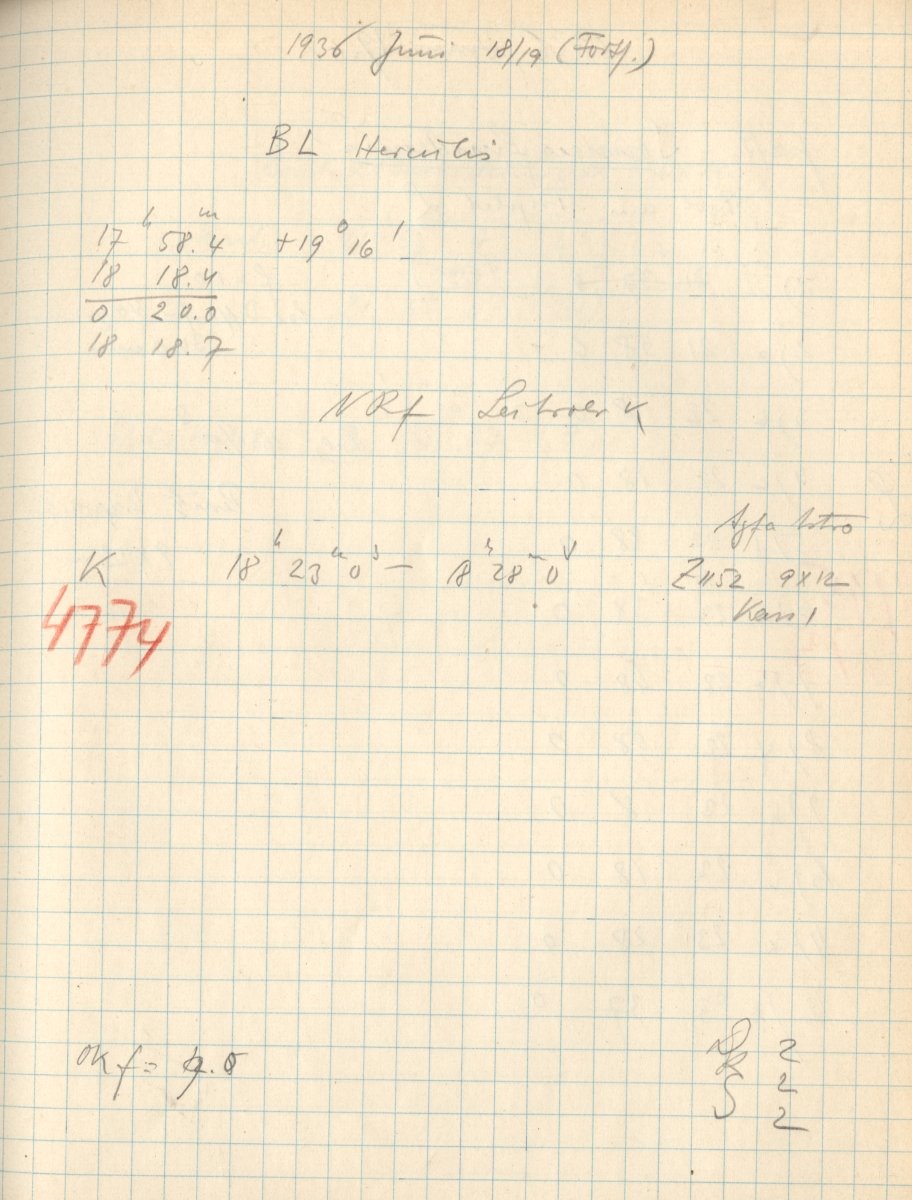 1936 Juni 18/19 (Forts.)
BL Herculis
17ʰ 58.4ᵐ +19° 16'
18 18.4
0 20.0
18 18.7
NRf
K 18ʰ 23ᵐ 0ˢ — 18ʰ 28ᵐ 0ˢ
Agfa Astro
Z1152 9x12
Kass 1
4774
okf =
2
S 2
2